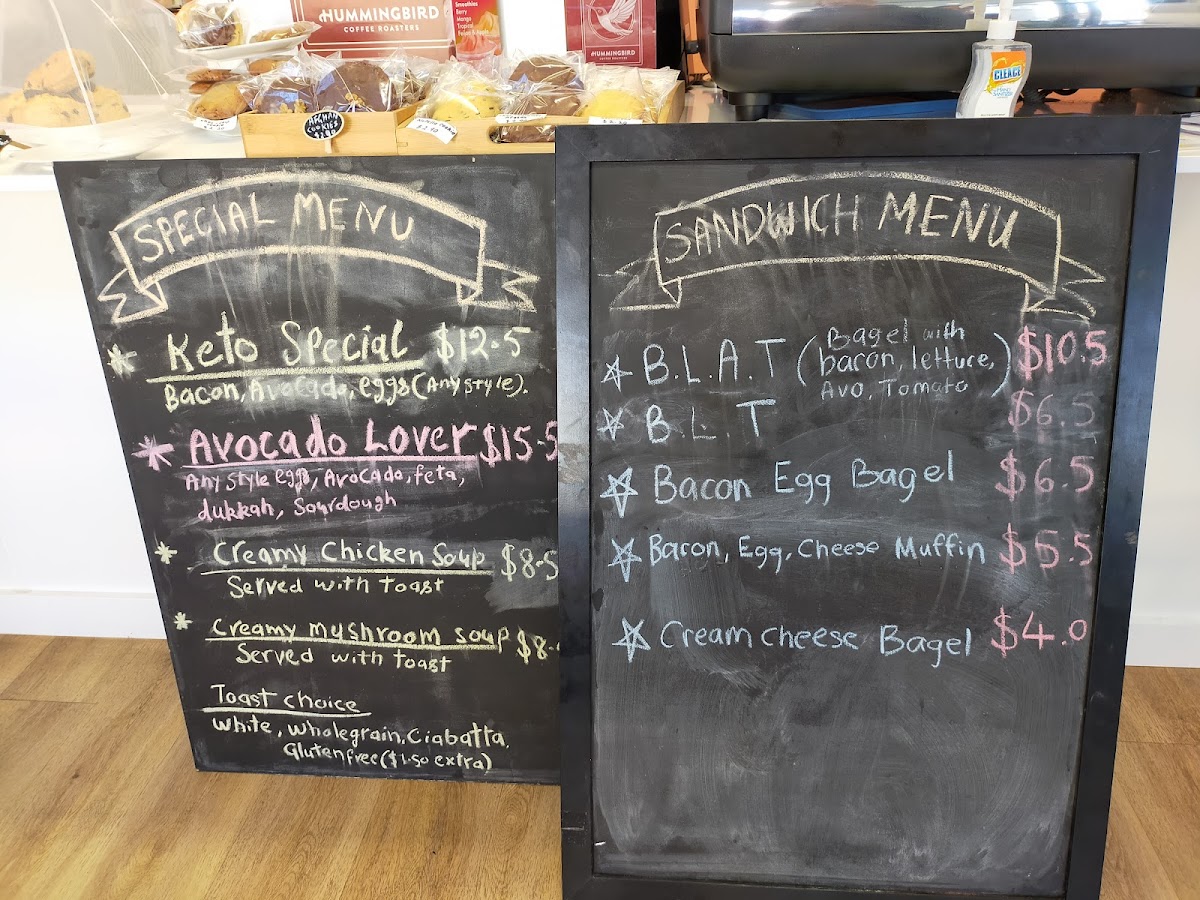 HUMMINGBIRD
COFFEE ROASTERS
Smoothies
Berry
Mango
Tropical
HUMMINGBIRD
COFFEE ROASTERS
CLEACE
AFGHAN
COOKIES
SPECIAL MENU
Keto Special $12.5
Bacon, Avocado, eggs (Any style).
Avocado Lover $15.5
Any style eggs, Avocado, feta,
dukkah, Sourdough
Creamy Chicken Soup $8.5
Served with toast
Creamy mushroom soup $8.
Served with toast
Toast choice
White, wholegrain, Ciabatta,
Glutenfree ($1.50 extra)
SANDWICH MENU
B.L.A.T (Bagel with
bacon, lettuce,
Avo, Tomato) $10.5
B L T $6.5
Bacon Egg Bagel $6.5
Bacon, Egg, Cheese Muffin $5.5
Cream cheese Bagel $4.0